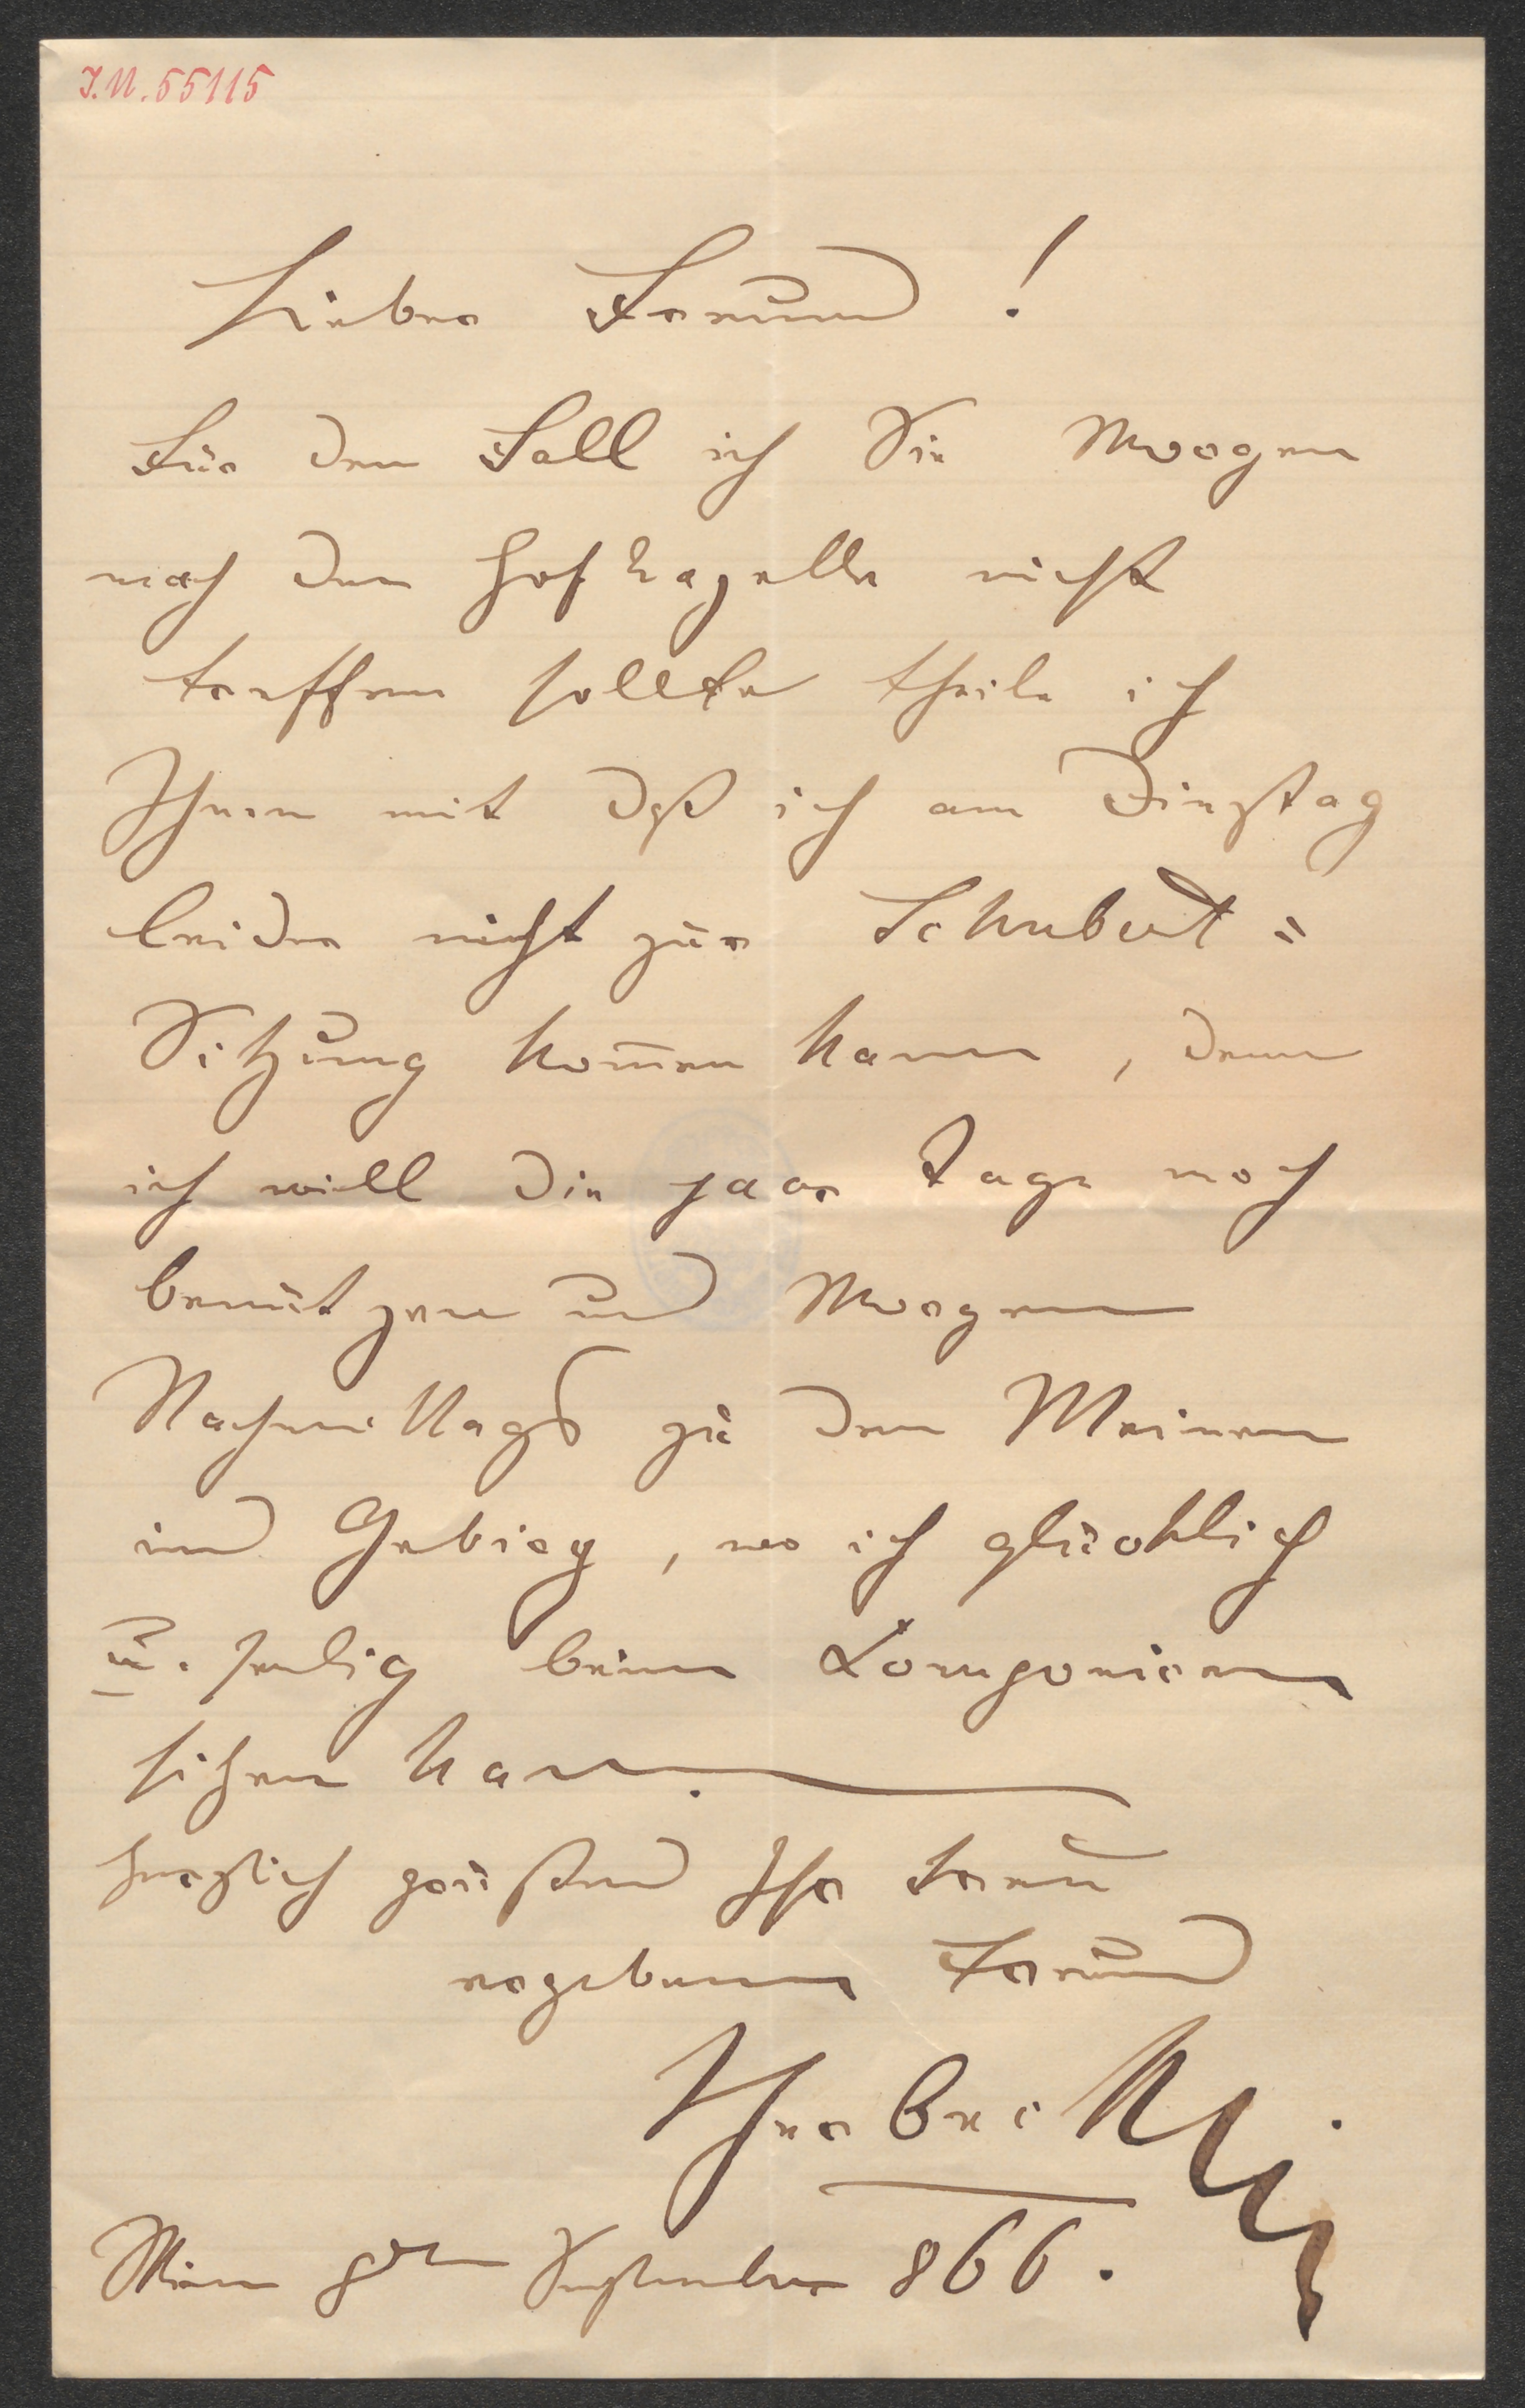 I.N. 55115
Lieber Freund!
Für den Fall ich Sie Morgen
nach der Hofkapelle nicht
treffen sollte theile ich
Ihnen mit daß ich am Dinstag
leider nicht zur Schubert=
Sitzung kom̅en kann, denn
ich will die paar Tage noch
benützen und Morgen
Nachmittags zu den Meinen
ins Gebirg, wo ich glücklich
u. seelig beim Componieren
sitzen kann.
Herzlich grüßend Ihr treu
ergebener Freund
Herbeck.
Wien 8ten September 866.